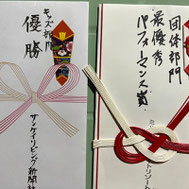 キッズ部門
優勝
サンケイリビング新聞社
団体部門
最優秀
パフォーマンス賞
リゾート